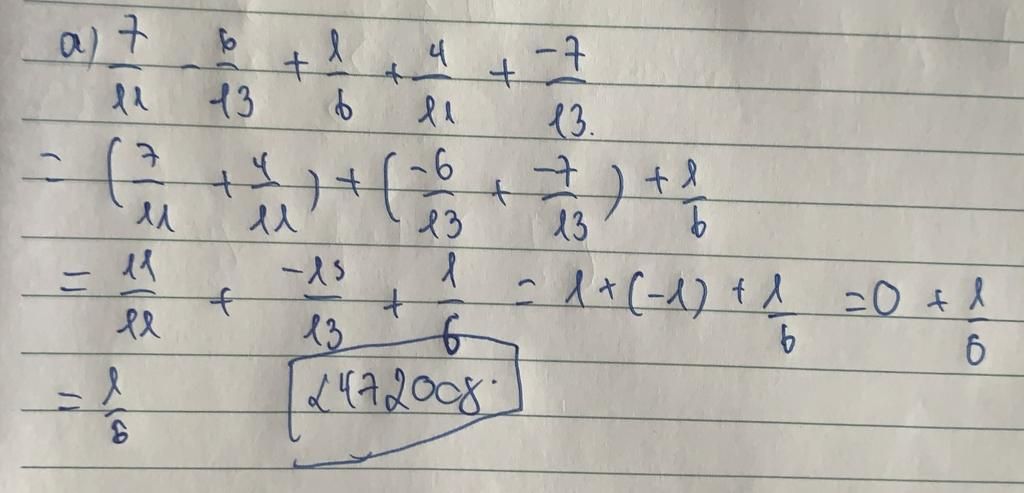 a) 7/11 - 6/13 + 1/6 + 4/11 + -7/13.
= (7/11 + 4/11) + (-6/13 + -7/13) + 1/6
= 11/11 + -13/13 + 1/6 = 1 + (-1) + 1/6 = 0 + 1/6
= 1/6
1472008.